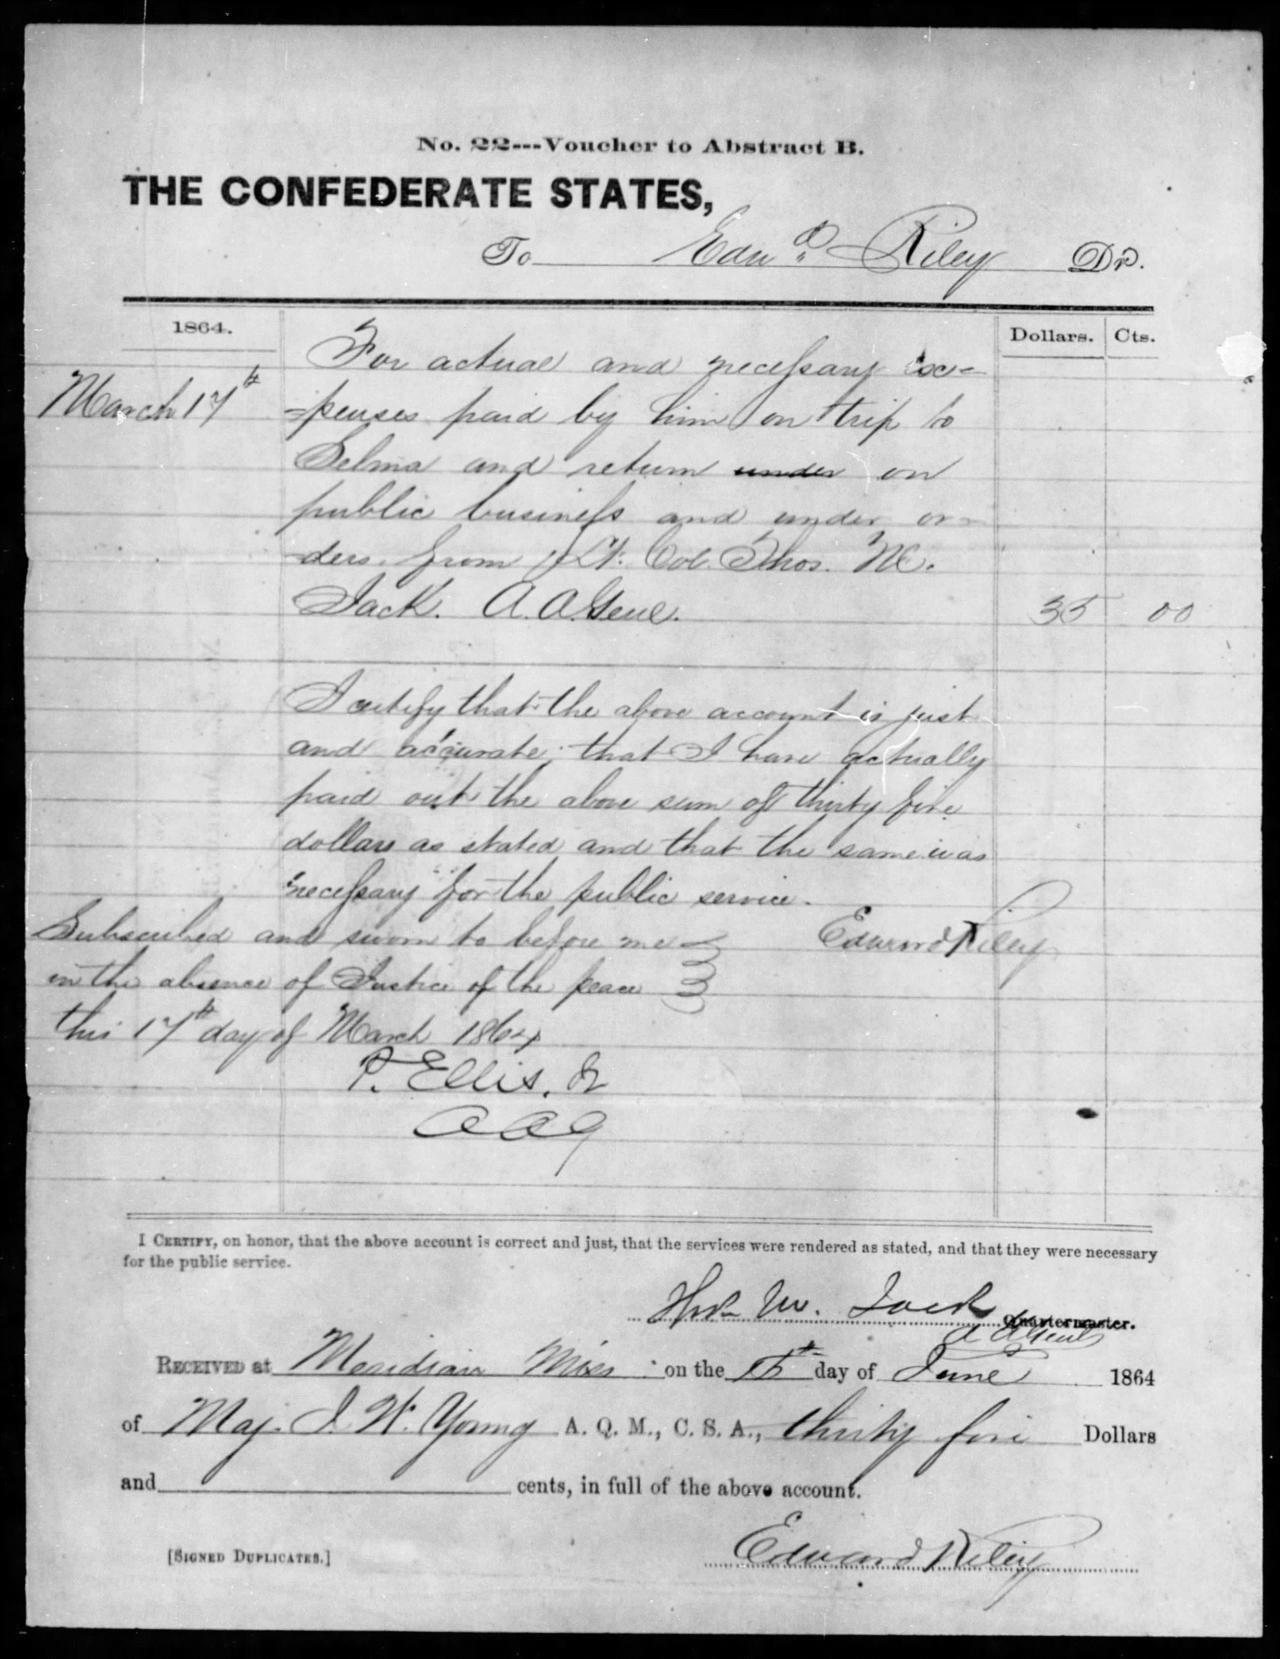 No. 22---Voucher to Abstract B.
THE CONFEDERATE STATES,
To Edwd. Riley Dr.
1864. Dollars. Cts.
For actual and necessary ex=
March 17th =penses paid by him on trip to
Selma and return under on
public business and under or=
=ders from Lt. Col. Thos. M.
Jack. A. A. Genl. 35 00
I certify that the above account is just
and accurate; that I have actually
paid out the above sum of thirty five
dollars as stated and that the same was
necessary for the public service.
Subscribed and sworn to before me Edward Riley
in the absence of Justice of the peace
this 17th day of March 1864
P. Ellis, Jr
A A G
I CERTIFY, on honor, that the above account is correct and just, that the services were rendered as stated, and that they were necessary
for the public service.
Thos M. Jack Quartermaster.
A A Genl
RECEIVED at Meridian Miss on the 15th day of June 1864
of Maj. J. W. Young A. Q. M., C. S. A., thirty five Dollars
and cents, in full of the above account.
[SIGNED DUPLICATES.] Edward Riley